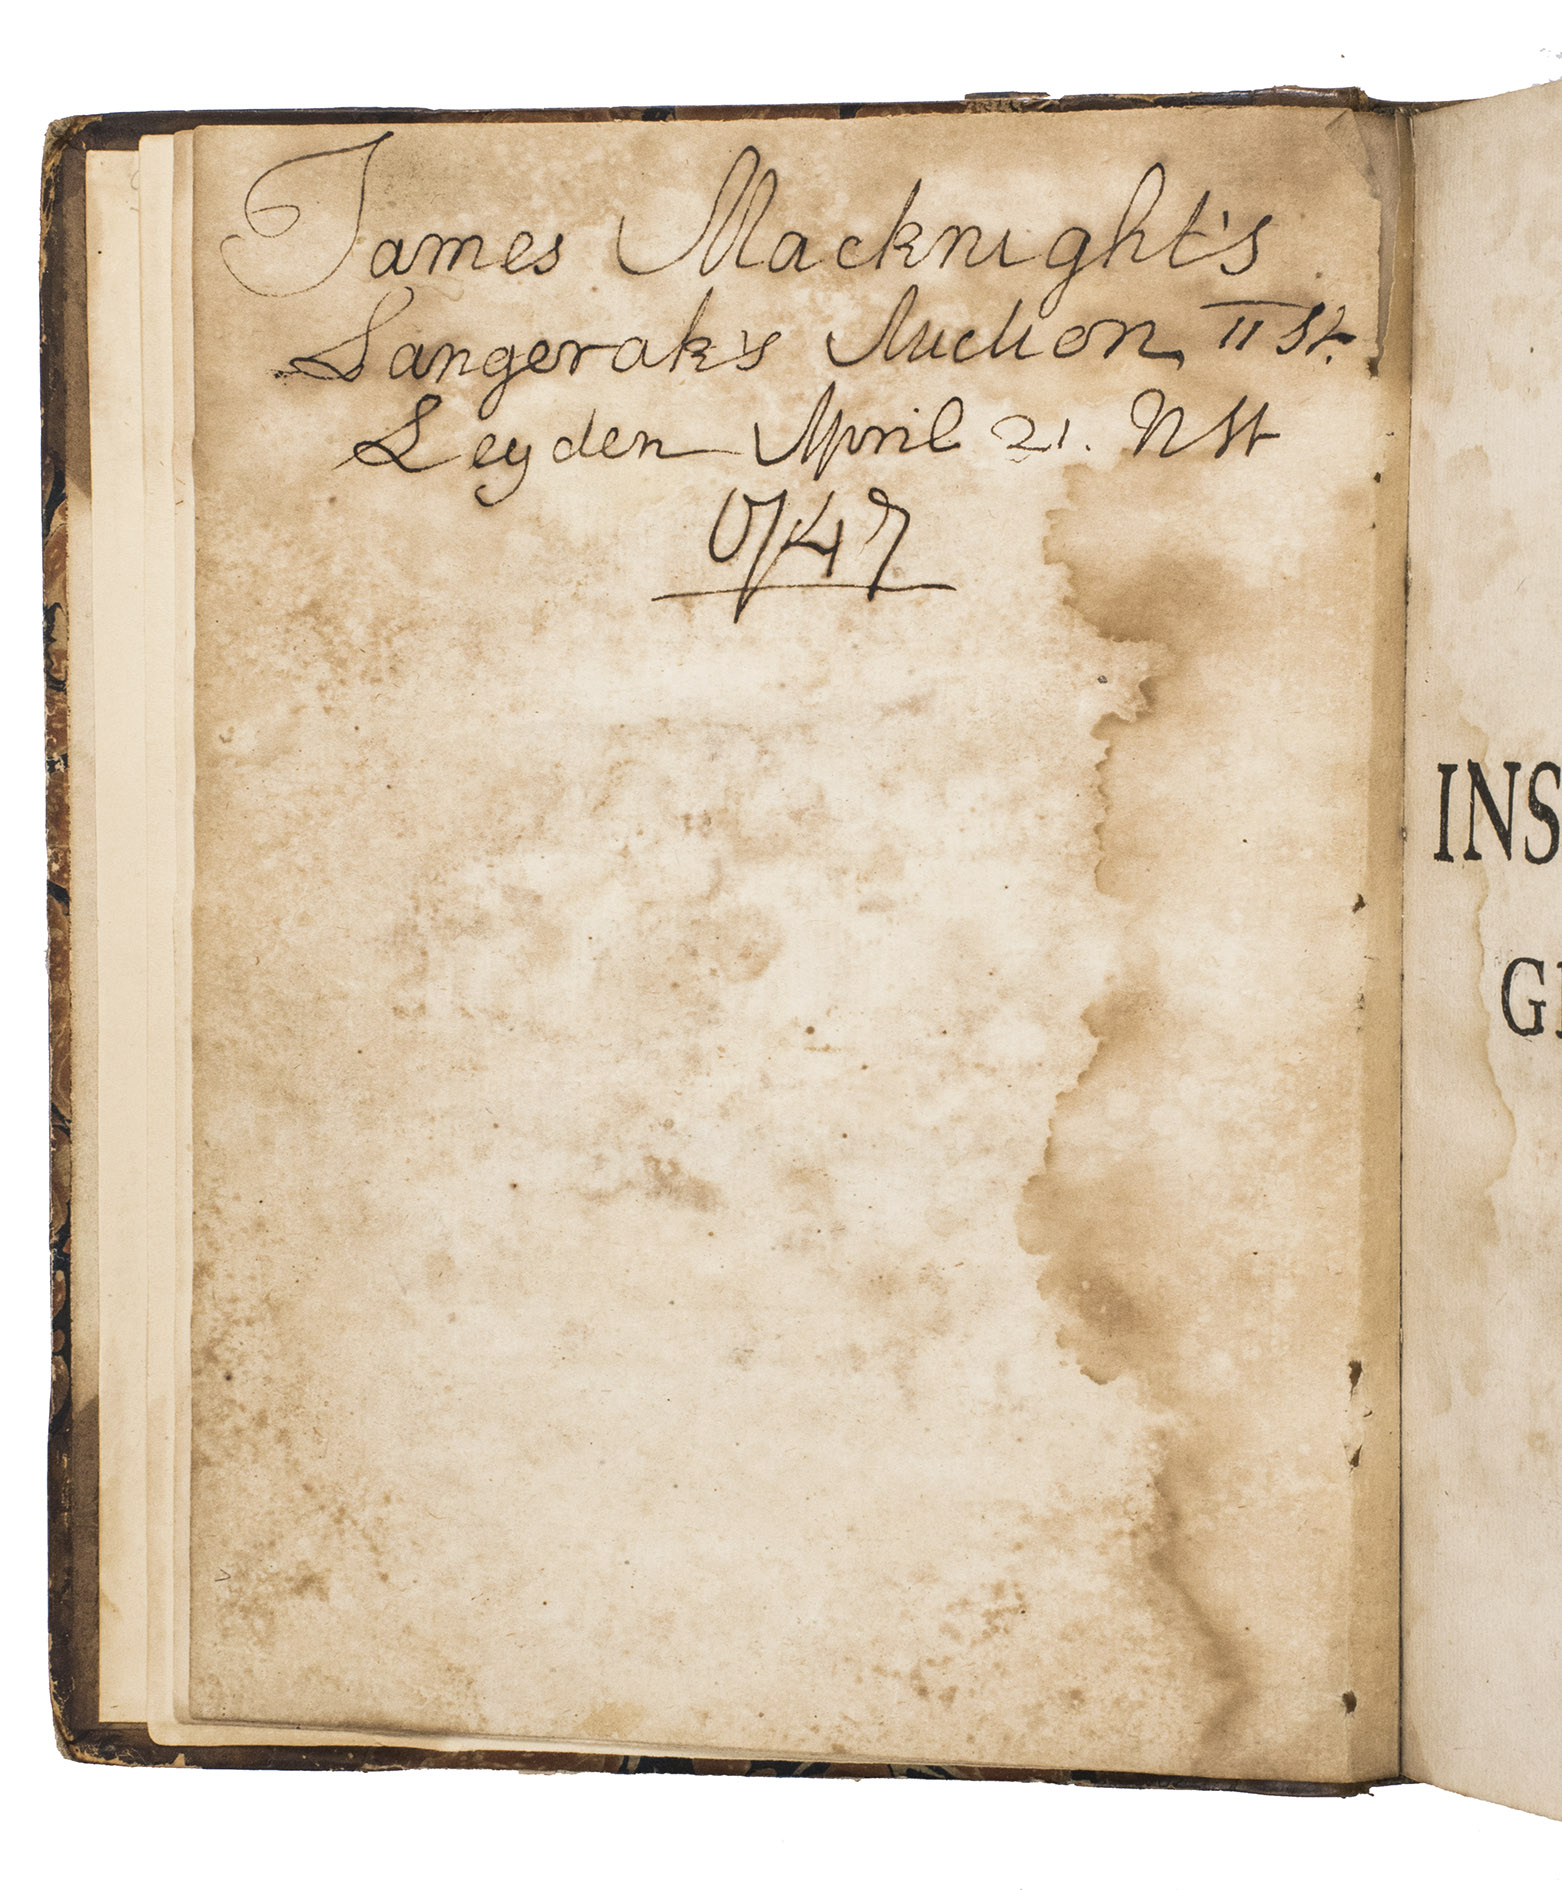 James Macknight's
Langerak's Auction 11 St.
Leyden April 21. N St
1747
INS
G